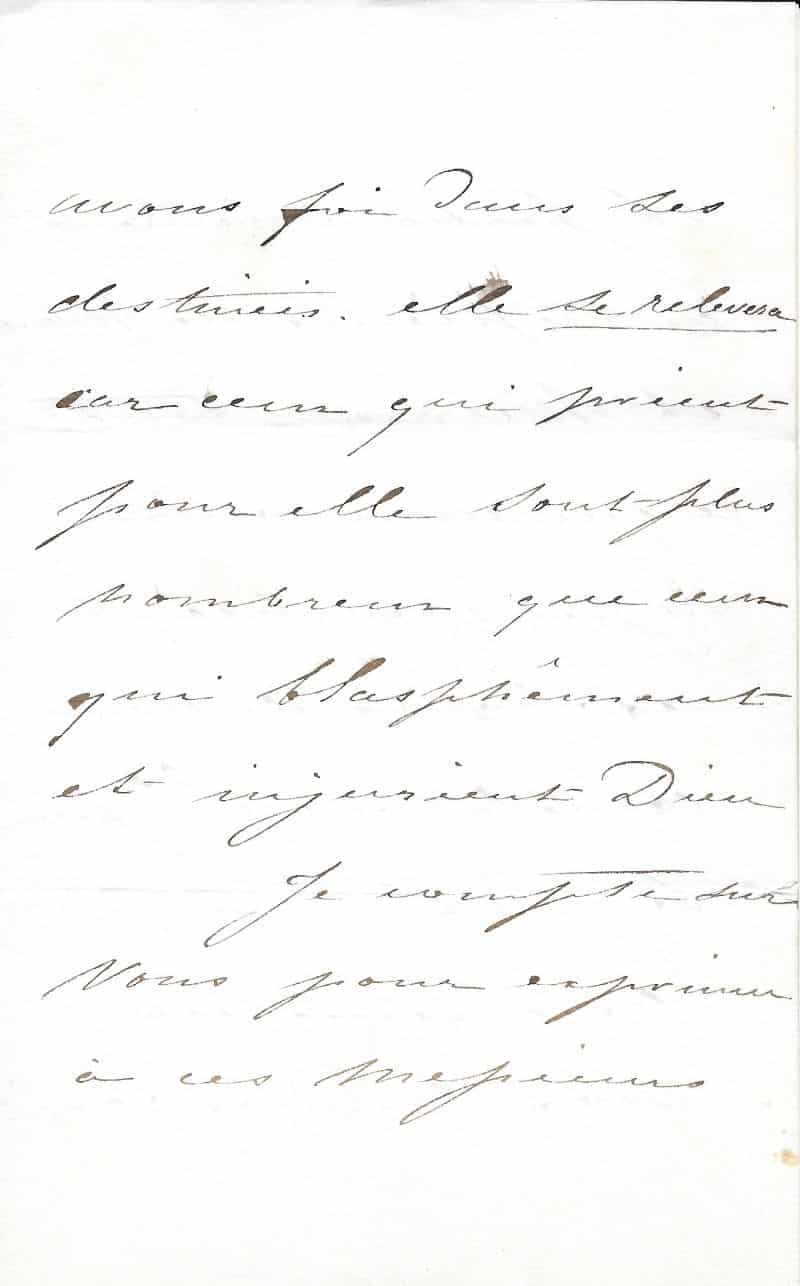 avons foi dans ses
destinées. elle se relevera
car ceux qui prient
pour elle sont plus
nombreux que ceux
qui blasphêment
et injurient Dieu
Je compte sur
Vous pour exprimer
à ces Messieurs